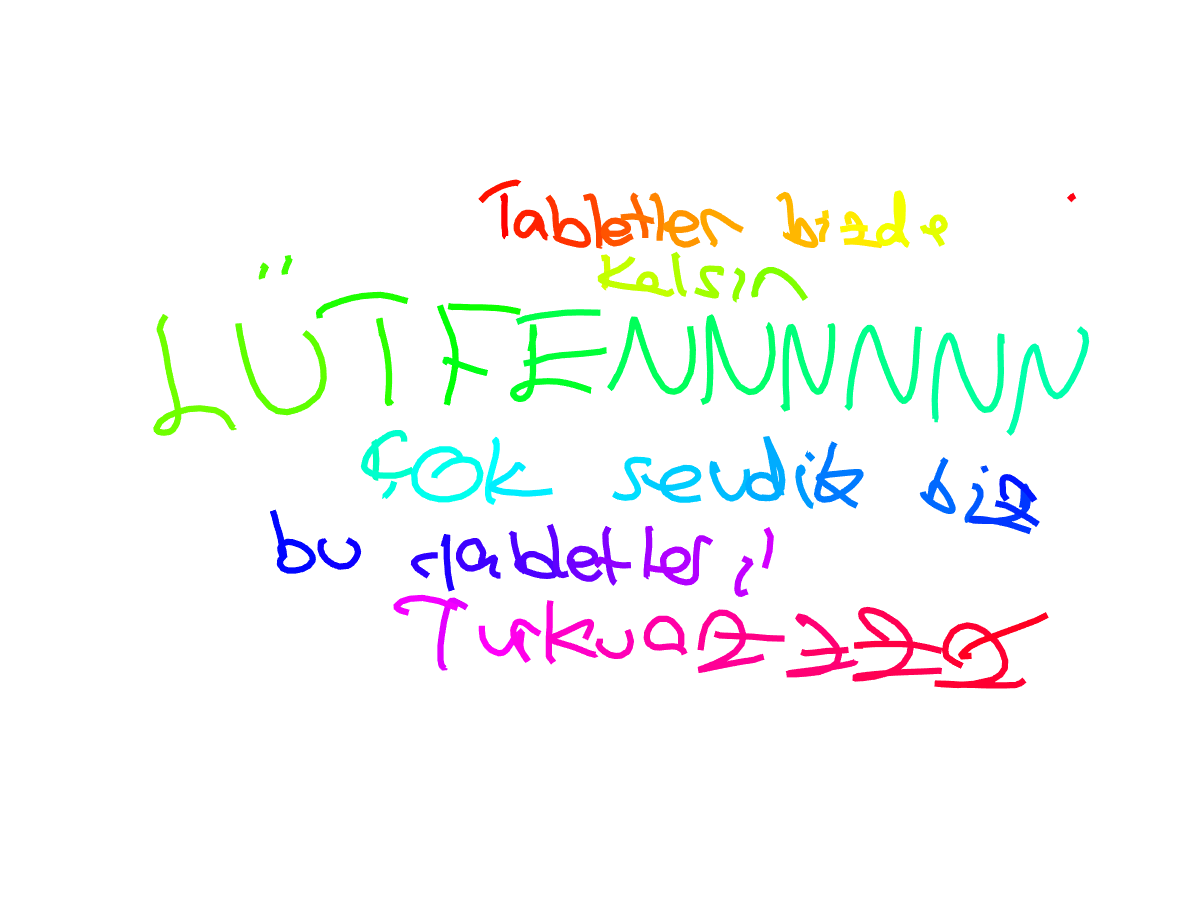 Tabletler bizde
kalsın
LÜTFENNNNNN
ÇOK sevdik biz
bu tabletleri
Turkuazzzz